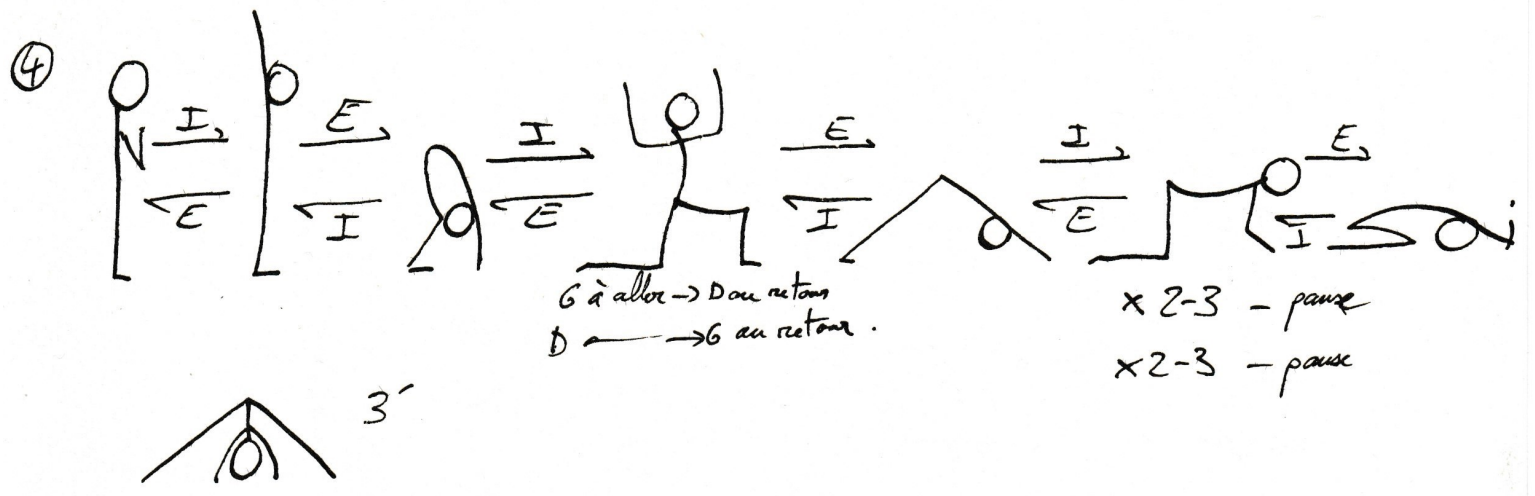 ④
I E I E I E
E I E I E I
G à aller → D au retour
D → G au retour.
× 2-3 - pause
× 2-3 - pause
3′